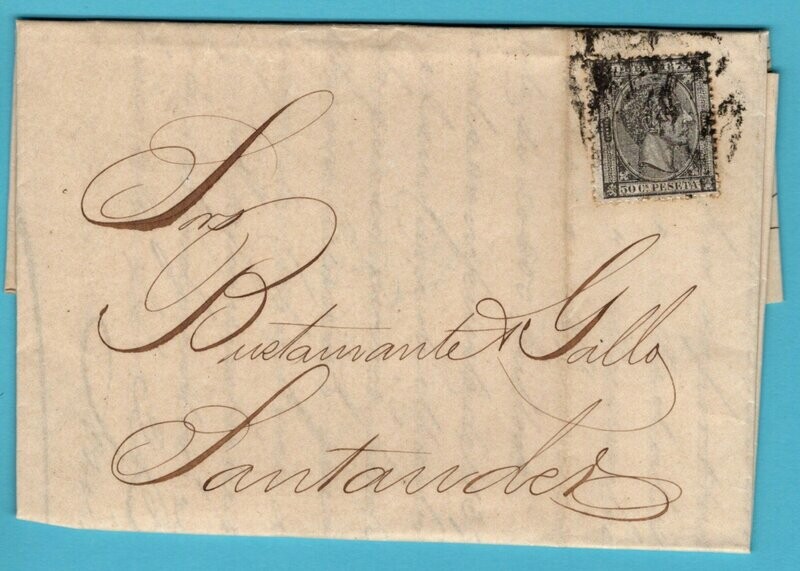 50 Cs PESETA
Sres
Bustamante & Gallo
Santander